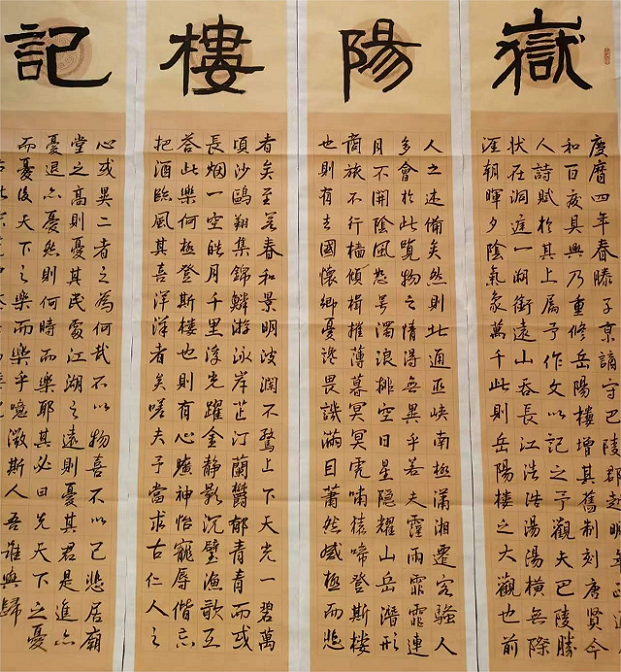 嶽陽樓記
慶曆四年春滕子京謫守巴陵郡越明
和百废具興乃重修岳陽樓增其舊制刻唐賢今
人詩賦於其上属予作文以記之予觀夫巴陵勝
状在洞庭一湖銜遠山吞長江浩浩湯湯横無際
涯朝暉夕陰氣象萬千此則岳陽樓之大觀也前
人之述備矣然則北通巫峽南極瀟湘遷客騷人
多會於此覽物之情得無異乎若夫霪雨霏霏連
月不開陰風怒号濁浪排空日星隐耀山岳潛形
商旅不行檣傾楫摧薄暮冥冥虎嘯猿啼登斯樓
也則有去國懷鄉憂讒畏譏滿目蕭然感極而悲
者矣至若春和景明波瀾不驚上下天光一碧萬
頃沙鷗翔集錦鱗游泳岸芷汀蘭鬱郁青青而或
長烟一空皓月千里浮光躍金静影沉璧漁歌互
答此樂何極登斯樓也則有心曠神怡寵辱偕忘
把酒臨風其喜洋洋者矣嗟夫予嘗求古仁人之
心或異二者之為何哉不以物喜不以己悲居廟
堂之高則憂其民處江湖之遠則憂其君是進亦
憂退亦憂然則何時而樂耶其必曰先天下之憂
而憂後天下之樂而樂乎噫微斯人吾誰與歸